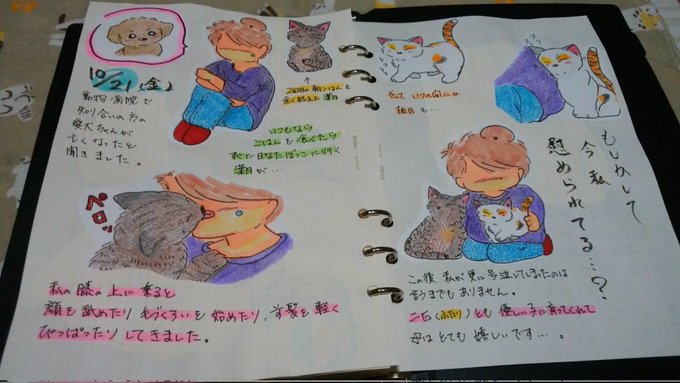 10/21(金)
動物病院で
知り合いの方の
愛犬ちゃんが
亡くなったと
聞きました。
↑
2回目の朝ごはんを
食べ終えた
いつもなら
ごはんを食べたら
すぐ日なたぼっこに行く
が…
ペロッ
私の膝の上に乗ると
顔を舐めたり毛づくろいを始めたり、前髪を軽く
ひっぱったりしてきました。
トコトコ
そしていつの間にか
も…
スリ
もしかして
今私
慰められてる…?
この後、私が更に号泣いてしまったのは
言うまでもありません。
二匹(ふたり)とも優しい子に育ってくれて
母はとても嬉しいです…。